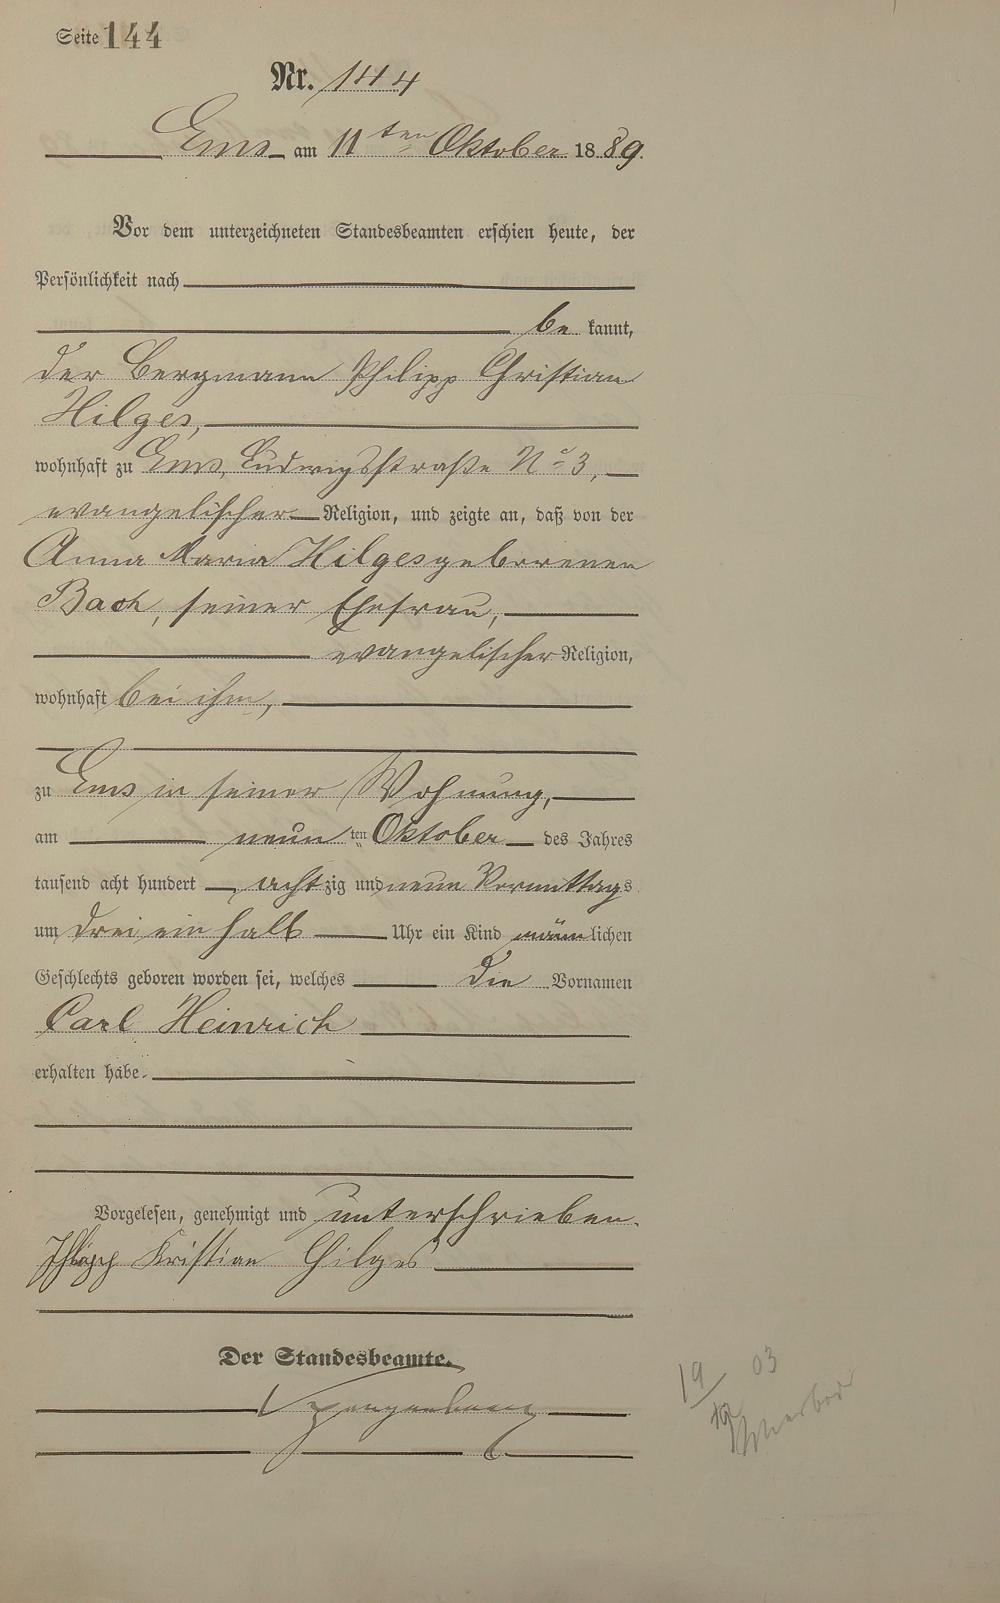 Seite 144
Nr. 144
Ems am 11ten Oktober 1889.
Vor dem unterzeichneten Standesbeamten erschien heute, der
Persönlichkeit nach
be kannt,
der Bergmann Philipp Christian
Hilges,
wohnhaft zu Ems, Ludwigsstraße No 3,
evangelischer Religion, und zeigte an, daß von der
Anna Maria Hilges geborenen
Bach, seiner Ehefrau,
evangelischer Religion,
wohnhaft bei ihm,
zu Ems in seiner Wohnung,
am neun ten Oktober des Jahres
tausend acht hundert acht zig und neun Vormittags
um drei ein halb Uhr ein Kind männlichen
Geschlechts geboren worden sei, welches die Vornamen
Carl Heinrich
erhalten habe.
Vorgelesen, genehmigt und unterschrieben.
Philipp Kristian Hilges
Der Standesbeamte.
19 03